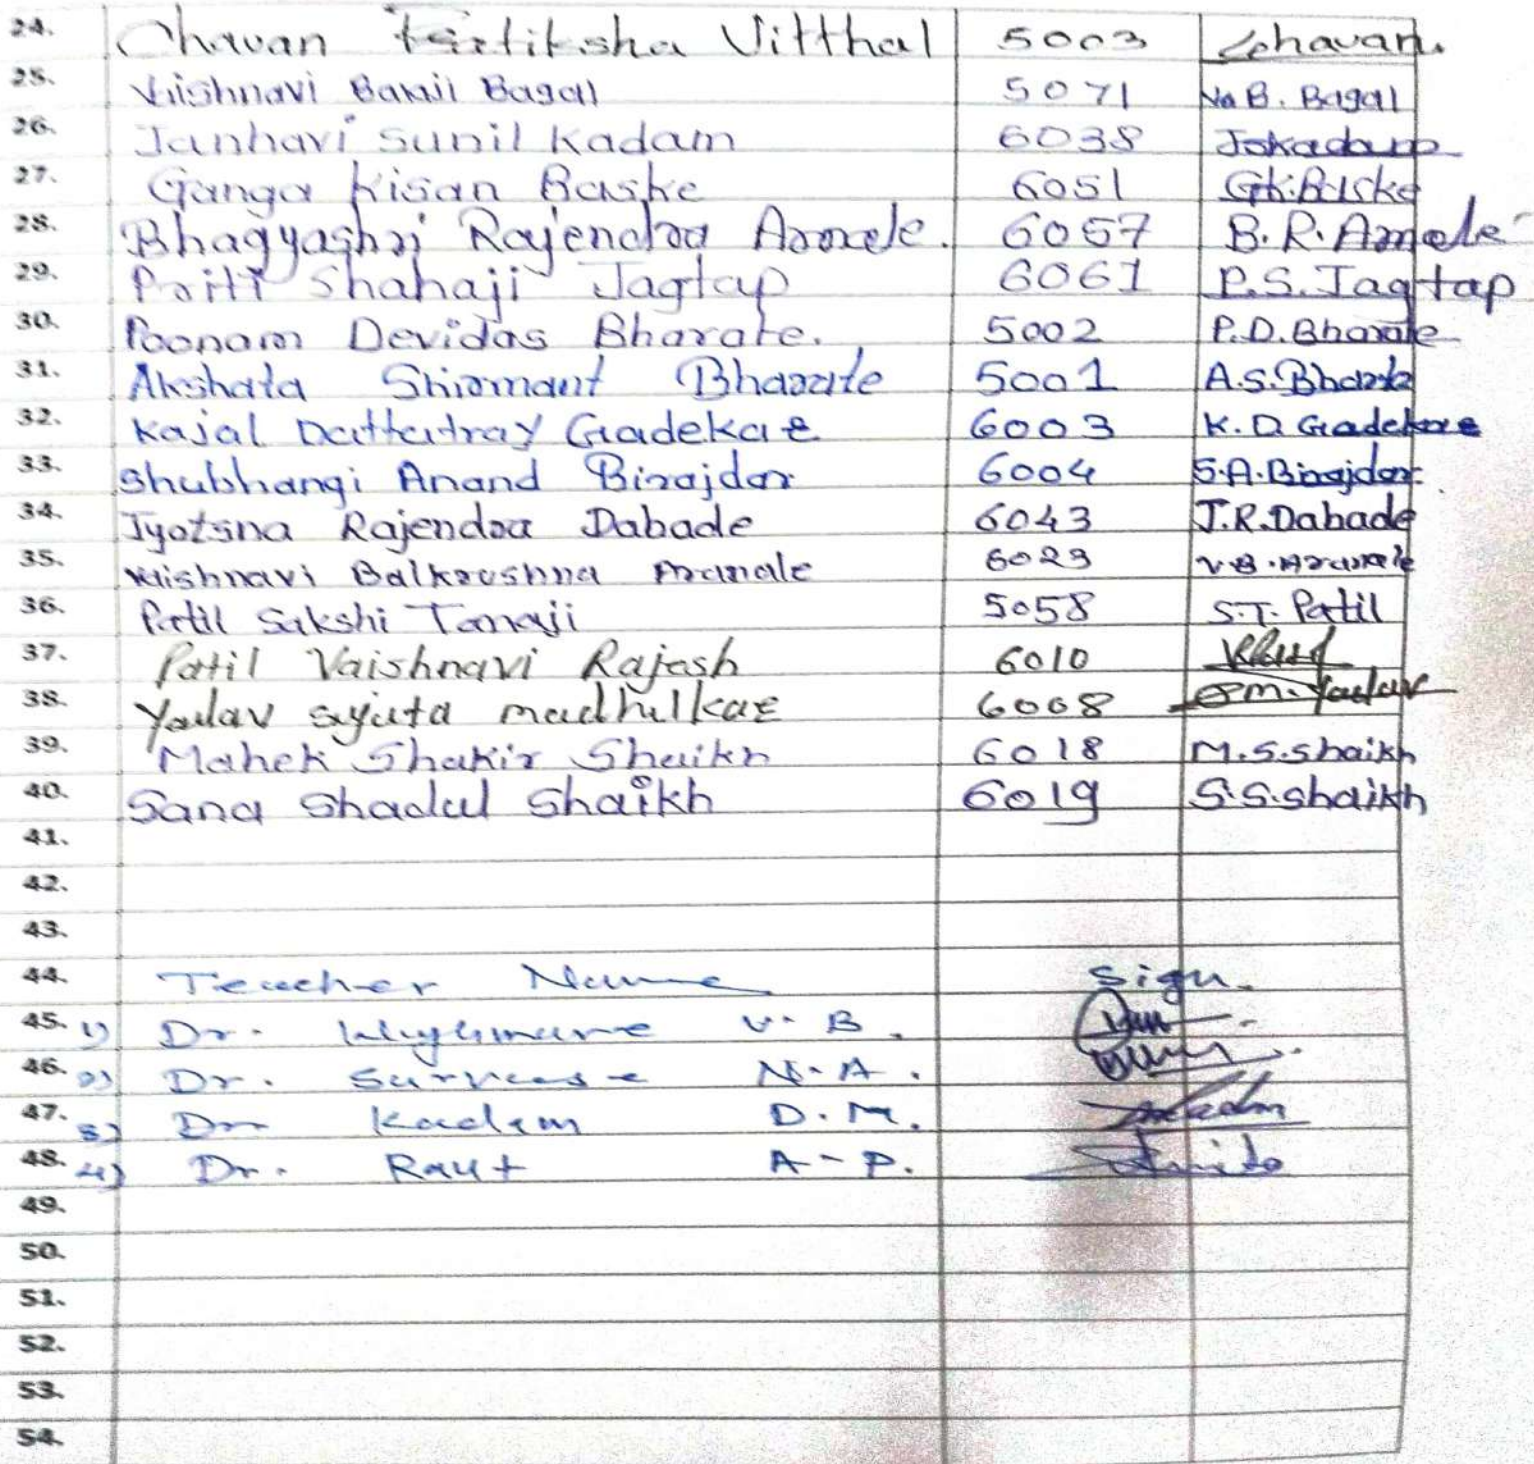 24. Chavan Vitthal 5003 Chavan.
25. Vaishnavi Bagal 5071 Va B. Bagal
26. Janhavi Sunil Kadam 6038 JsKadam
27. Ganga Kisan Baske 6051 G.K.Baske
28. Bhagyashri Rajendra 6057 B.R.
29. Priti Shahaji Jagtap 6061 P.S.Jagtap
30. Poonam Devidas Bharate. 5002 P.D.Bharate
31. Akshata Shrimant Bharate 5001 A.S.Bharate
32. Kajal Dattatray Gadekar 6003 K.D. Gadekar
33. Shubhangi Anand Birajdar 6004 S.A.Birajdar.
34. Jyotsna Rajendra Dabade 6043 J.R.Dabade
35. Vaishnavi Balkrushna 6023 V.B.
36. Patil Sakshi Tanaji 5058 S.T. Patil
37. Patil Vaishnavi Rajesh 6010
38. Yadav madhukar 6008 Yadav
39. Mahek Shakir Shaikh 6018 M.S.Shaikh
40. Sana Shadul Shaikh 6019 S.S.shaikh
41.
42.
43.
44. Teacher Name Sign.
45. 1) Dr. V. B.
46. 2) Dr. Survase N.A.
47. 3) Dr Kadam D.M.
48. 4) Dr. Raut A-P.
49.
50.
51.
52.
53.
54.